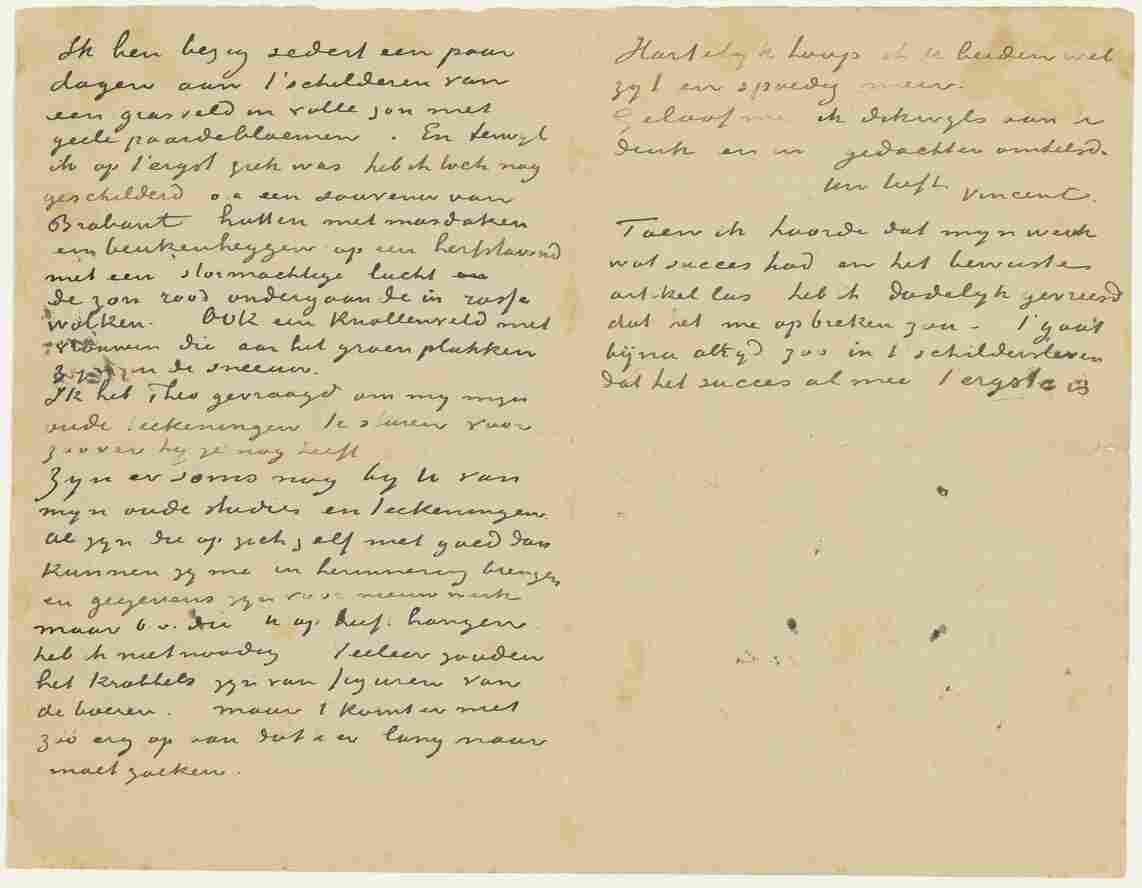 Ik ben bezig sedert een paar
dagen aan 't schilderen van
een grasveld in volle zon met
geele paardebloemen. En terwyl
ik op 't ergst ziek was heb ik toch nog
geschilderd o.a een souvenir van
Brabant hutten met mosdaken
en beukenheggen op een herfstavond
met een stormachtige lucht
de zon rood ondergaande in rosse
wolken. Ook een knollenveld met
vrouwen die aan het groen plukken
zyn in de sneeuw.
Ik heb Theo gevraagd om my myn
oude teekeningen te sturen voor
zoover hy ze nog heeft
Zyn er soms nog by U van
myn oude studies en teekeningen.
Al zyn die op zich zelf niet goed dan
kunnen zy me in herinnering brengen
en gegevens zyn voor nieuw werk
maar b.v. die U op heeft hangen
heb ik niet noodig Veeleer zouden
het krabbels zyn van figuren van
de boeren. maar 't komt er niet
zoo erg op aan dat U er lang naar
moet zoeken.
Hartelyk hoop ik U beiden wel
zyt en spoedig meer.
Geloof me ik dikwyls aan U
denk en in gedachten omhelsd.
Uw liefh. Vincent.
Toen ik hoorde dat myn werk
wat succes had en het bewuste
artikel las heb ik dadelyk gevreesd
dat het me opbreken zou. 't gaat
byna altyd zoo in 't schildersleven
dat het succes al mee 't ergste is